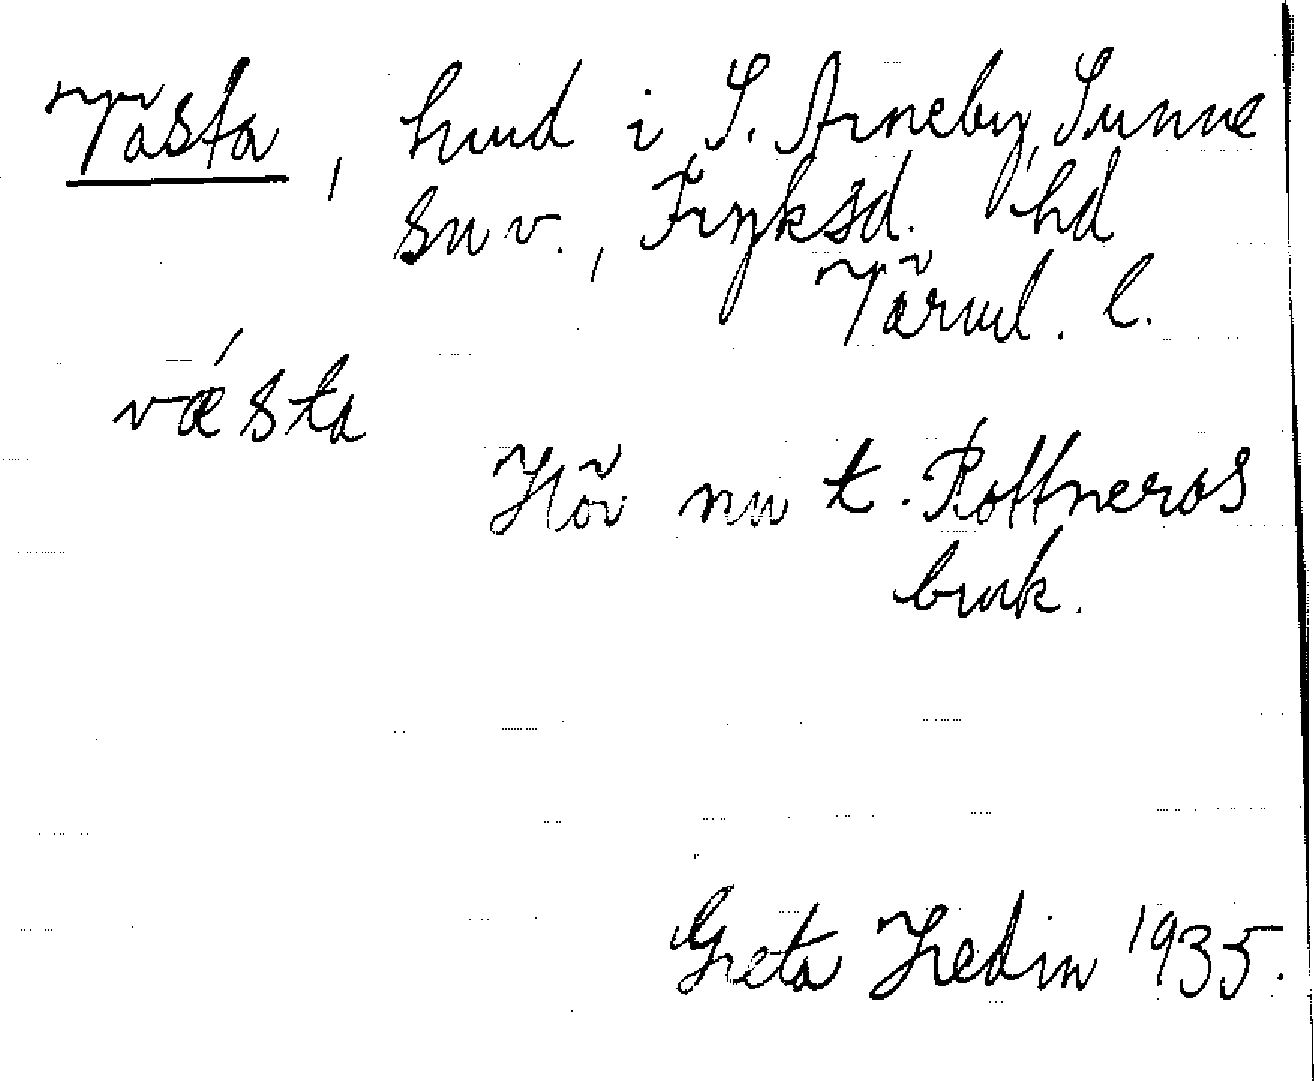 Västa, hmd i S. Arneby, Sunne
snv., Fryksd. hd
Värml. l.
væ´sta
Hör nu t. Rottneros
bruk.
Greta Hedin 1935.